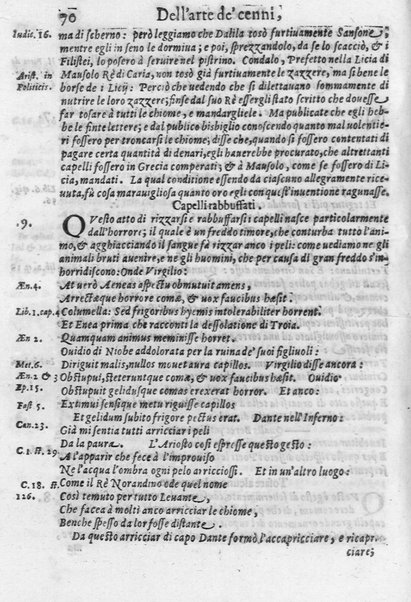 70 Dell'arte de' cenni,
Iudic. 16. ma di scherno: però leggiamo che Dalila tosò furtiuamente Sansone,
mentre egli in seno le dormiua; e poi, sprezzandolo, da se lo scacciò, & i
Filistei, lo posero à seruire nel pistrino. Condalo, Prefetto nella Licia di
Arist. in Mausolo Rè di Caria, non tosò già furtiuamente le zazzere, ma sì bene le
Politicis. borse de i Licij: Perciò che vedendo che si dilettauano sommamente di
nutrire le loro zazzere; finse dal suo Rè essergli stato scritto che douesse
far tosare à tutti le chiome, e mandargliele. Ma publicate che egli heb-
be le finte lettere; e dal publico bisbiglio conoscendo quanto mal volentie-
ri fossero per troncarsi le chiome, disse che, quando si fossero contentati di
pagare certa quantità di denari, egli hauerebbe procurato, che altrettanti
capelli fossero in Grecia comperati; & à Mausolo, come se fossero di Li-
cia, mandati. La qual conditione essendo da ciascuno allegramente rice-
uuta, fù cosa marauigliosa quanto oro egli con quest'inuentione ragunasse.
Capelli rabbuffati.
9. QVesto atto di rizzarsi e rabbuffarsi i capelli nasce particolarmente
dall'horrore; il quale è un freddo timore, che conturba tutto l'ani-
mo, & agghiacciando il sangue fà rizzar anco i peli: come uediamo ne gli
animali bruti auenire, e ne gli huomini, che per causa di gran freddo s'in-
horridiscono: Onde Virgilio:
Æn. 4. At uerò Aeneas aspectu obmutuit amens,
Arrectæque horrore comæ, & uox faucibus hæsit.
Lib. 1. cap. 4 Columella: Sed frigoribus hyemis intolerabiliter horrent.
Et Enea prima che racconti la dessolatione di Troia.
Æn 2. Quamquam animus meminisse horret.
Ouidio di Niobe addolorata per la ruina de' suoi figliuoli:
Met. 6. Diriguit malis, nullos mouet aura capillos. Virgilio disse ancora:
Æn. 2 & 3 Obstupui, steteruntque comæ, & uox faucibus hæsit. Ouidio
Ep. 15. Obstupuit gelidusque comas erexerat horror. Et anco:
Fast 5. Extimui sensique metu riguisse capillos
Et gelidum subito frigore pectus erat. Dante nell'Inferno:
Can. 23. Già mi sentia tutti arricciar i peli
Da la paura. L'Ariosto così espresse questo gesto:
C. 1. st. 29 A l'apparir che fece à l'improuiso
Ne l'acqua l'ombra ogni pelo arricciossi. Et in un'altro luogo:
C. 18. st. Come il Rè Norandino ode quel nome
126. Così temuto per tutto Leuante,
Che facea à molti anco arricciar le chiome,
Benche spesso da lor fosse distante.
Da questo arricciar di capo Dante formò l'accapricciare, e ricapr-
cciare;